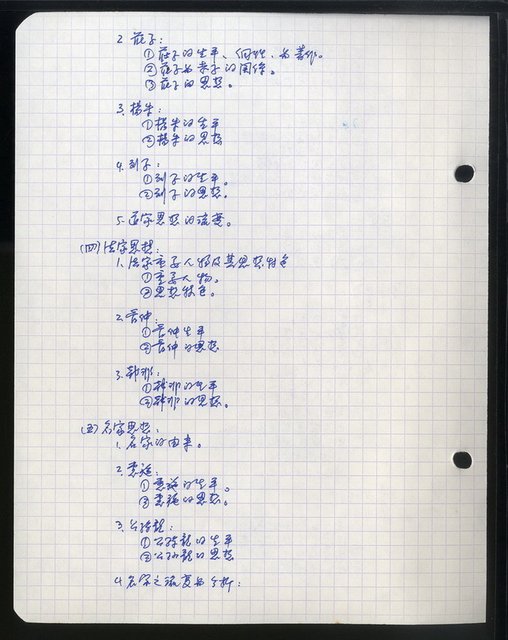 2. 莊子:
①莊子的生平、個性、与著作。
②莊子与老子的関係。
③莊子的思想。
3. 楊朱:
①楊朱的生平
②楊朱的思想
4. 列子:
①列子的生平。
②列子的思想.
5. 道家思想的流變。
(四)法家思想:
1. 法家重要人物及其思想特色
①重要人物。
②思想特色。
2. 管仲:
①管仲生平
②管仲的思想
3. 韓非:
①韓非的生平
②韓非的思想。
(五)名家思想:
1. 名家的由來。
2. 惠施:
①惠施的生平。
②惠施的思想。
3. 公孫龍:
①公孫龍的生平
②公孫龍的思想
4. 名家之流變与分析: